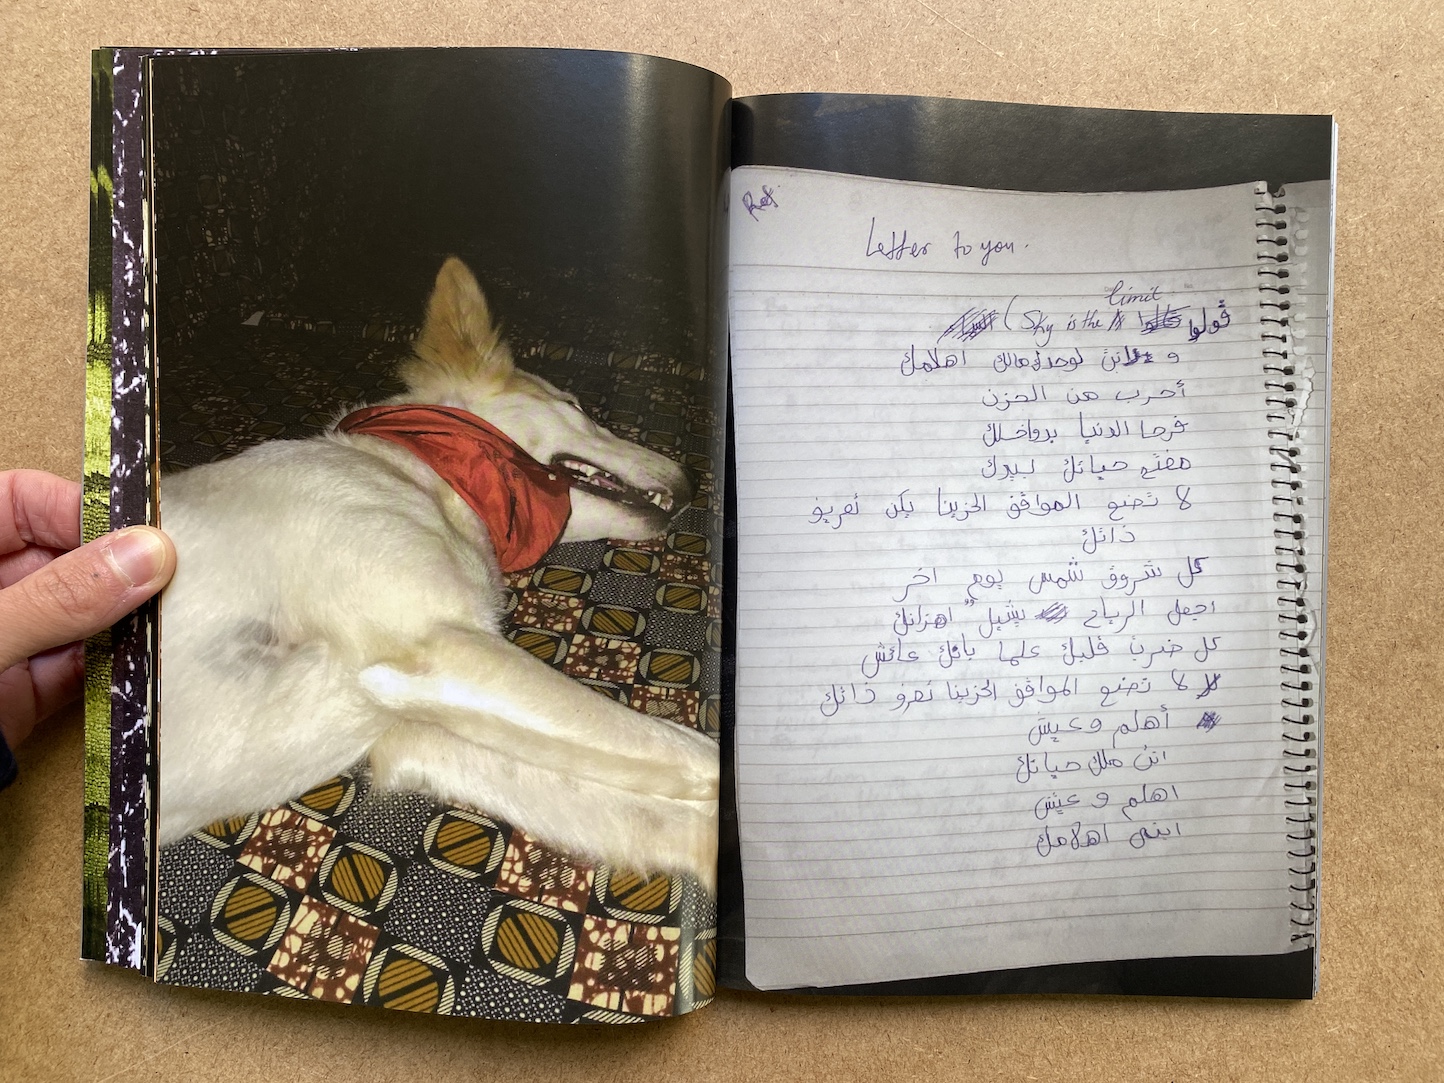 Ref
Letter to you.
limit
قولوا (Sky is the
و ابن لوحدك مالك اهلامك
أحرب من الحزن
فرحا الدنيا بدواخلك
مفتح حياتك لبيدك
لا تضيع المواقف الحزينا يكن تعريفو
ذاتك
كل شروق شمس يوم اخر
اجعل الرياح يشيل اهزانك
كل ضربة قلبك علما بانك عائش
لا تضيع المواقف الحزينا تعرو ذاتك
أهلم وعيش
انت ملك حياتك
اهلم و عيش
ابني اهلامك